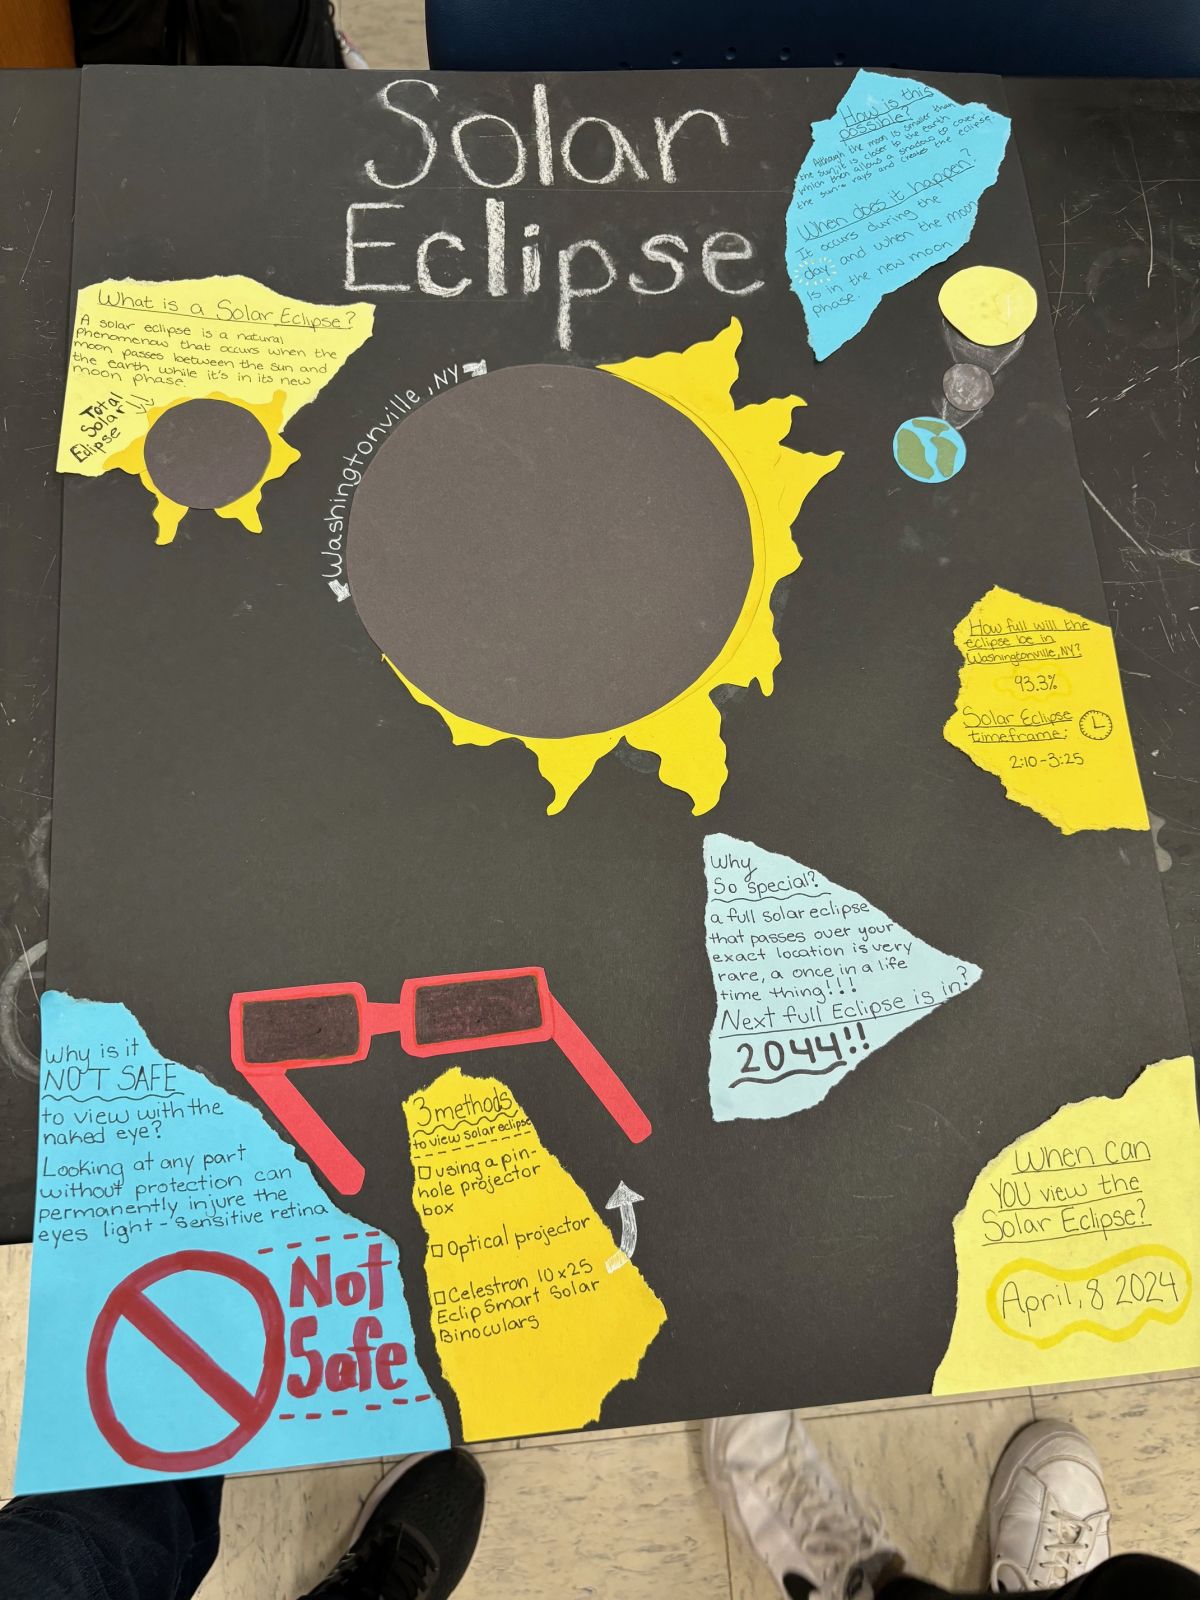 Solar
Eclipse
How is this
possible?
Although the moon is smaller than
the sun, it is closer to the earth
which then allows a shadow to cover
the sun's rays and creates the eclipse
When does it happen?
It occurs during the
day and when the moon
is in the new moon
phase.
What is a Solar Eclipse?
A solar eclipse is a natural
Phenomenon that occurs when the
moon passes between the sun and
the earth while it's in its new
moon phase.
Total
Solar
Eclipse
Washingtonville, NY
How full will the
eclipse be in
Washingtonville, NY?
93.3%
Solar Eclipse
timeframe:
2:10-3:25
Why
So special?
a full solar eclipse
that passes over your
exact location is very
rare, a once in a life
time thing!!!
Next full Eclipse is in?
2044!!
Why is it
NOT SAFE
to view with the
naked eye?
Looking at any part
without protection can
permanently injure the
eyes light-sensitive retina
Not
Safe
3 methods
to view solar eclipse
using a pin-
hole projector
box
Optical projector
Celestron 10x25
EclipSmart Solar
Binoculars
When can
YOU view the
Solar Eclipse?
April, 8 2024